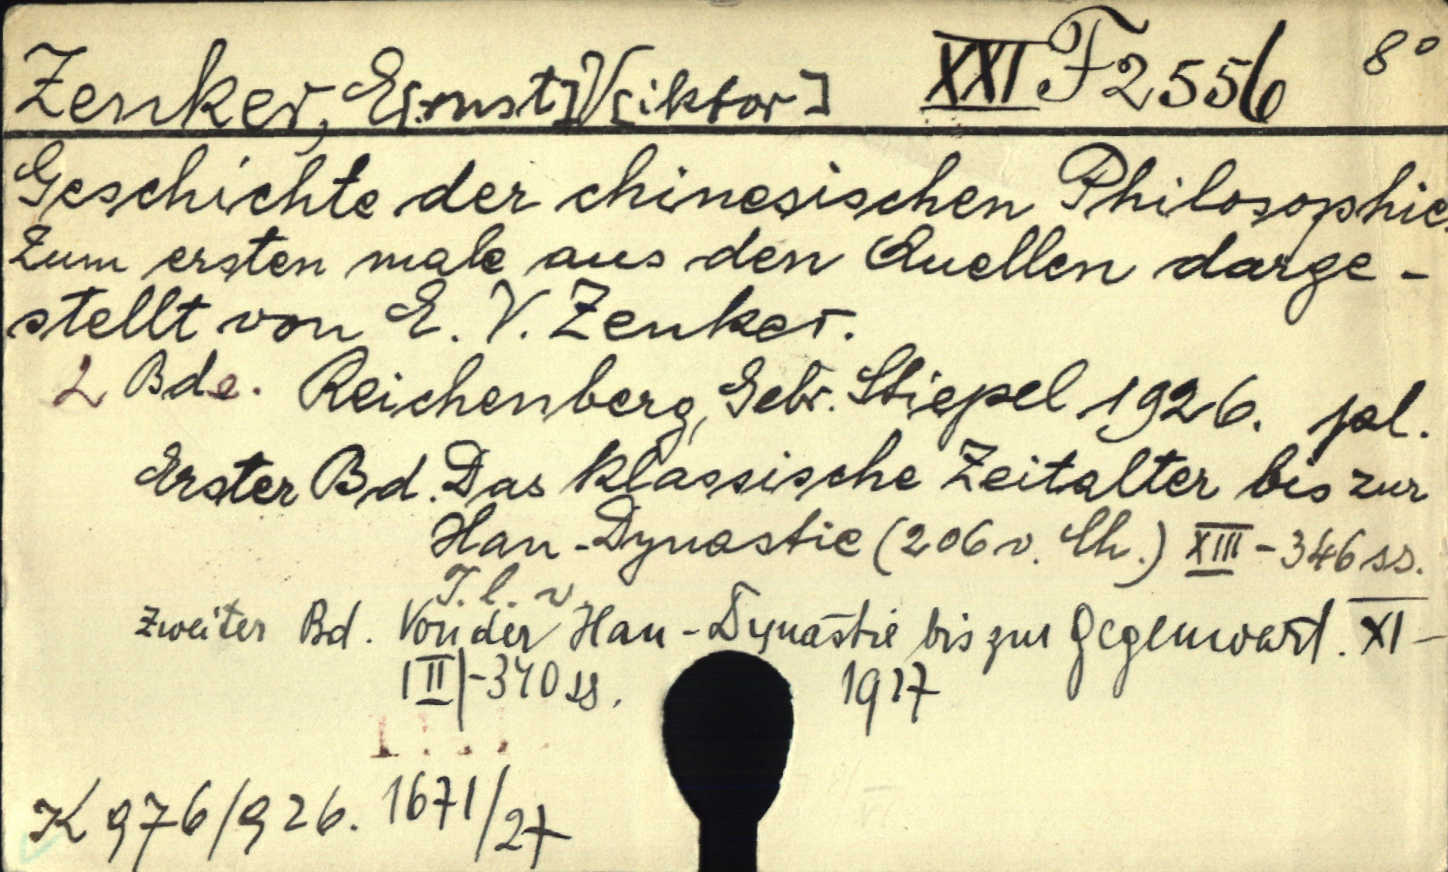 Zenker, E[rnst] V[iktor] XXI F 2556 8°
Geschichte der chinesischen Philosophie.
Zum ersten male aus den Quellen darge-
stellt von E. V. Zenker.
2 Bde. Reichenberg, Gebr. Stiepel 1926. pl.
Erster Bd. Das klassische Zeitalter bis zur
Han-Dynastie (206 v. Ch.) XIII-346 ss.
T. l. v.
Zweiter Bd. Von der Han-Dynastie bis zur Gegenwart. XI-
[II]-340 ss. 1927
K 976/926. 1671/27